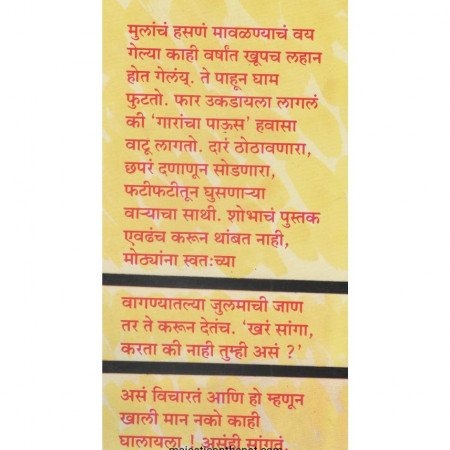 मुलांचं हसणं मावळण्याचं वय
गेल्या काही वर्षांत खूपच लहान
होत गेलंय्. ते पाहून घाम
फुटतो. फार उकडायला लागलं
की ‘गारांचा पाऊस’ हवासा
वाटू लागतो. दारं ठोठावणारा,
छपरं दणाणून सोडणारा,
फटीफटीतून घुसणाऱ्या
वाऱ्याचा साथी. शोभाचं पुस्तक
एवढंच करून थांबत नाही,
मोठ्यांना स्वतःच्या
वागण्यातल्या जुलमाची जाण
तर ते करून देतंच. ‘खरं सांगा,
करता की नाही तुम्ही असं ?’
असं विचारतं आणि हो म्हणून
खाली मान नको काही
घालायला ! असंही सांगतं.